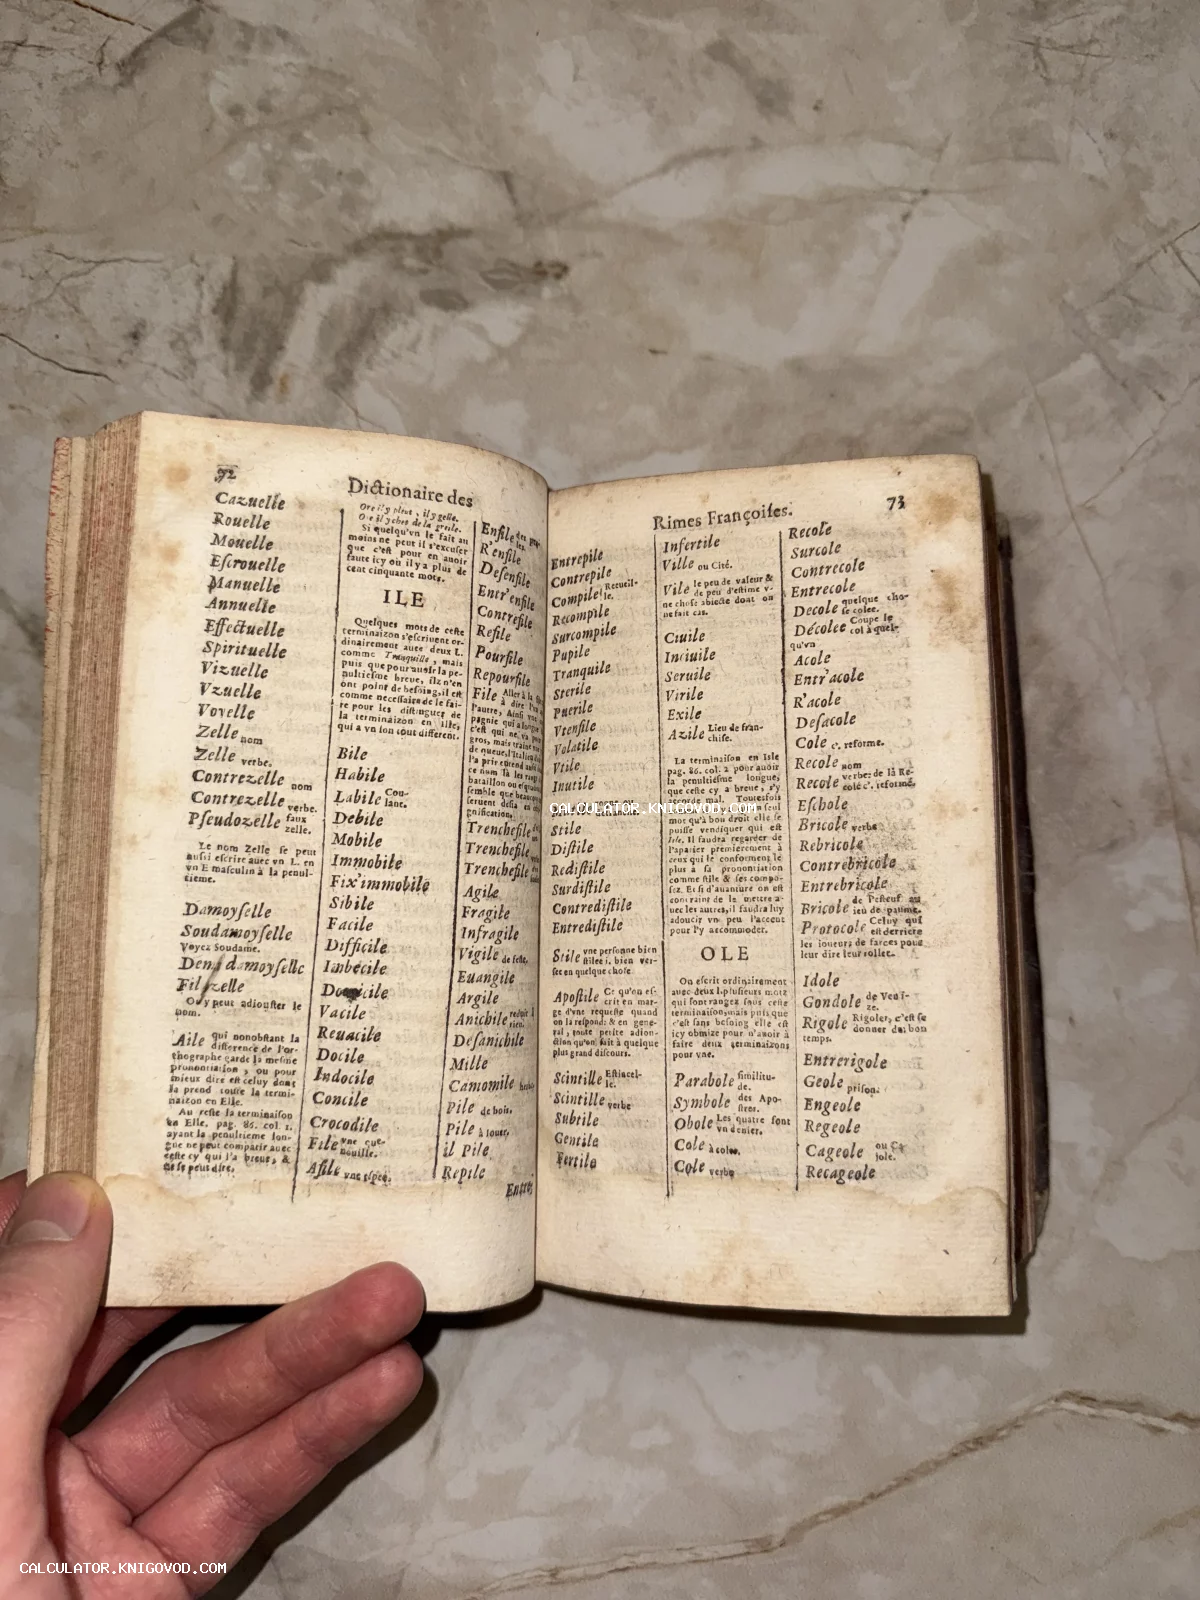 72
Dictionaire des
Cazuelle
Rouelle
Mouelle
Escrouelle
Manuelle
Annuelle
Effectuelle
Spirituelle
Vizuelle
Vzuelle
Voyelle
Zelle nom
Zelle verbe.
Contrezelle nom
Contrezelle verbe.
Pseudozelle faux
zelle.
Le nom Zelle se peut
aussi escrire auec vn L. en
vn E masculin à la penul-
tieme.
Damoyselle
Soudamoyselle
Voyez Soudame.
damoyselle
zelle
On y peut adiouster le
nom.
Aile qui nonobstant la
difference de l'or-
thographe garde la mesme
prononciation, ou pour
mieux dire est celuy dont
la prend toute la termi-
naizon en Elle.
Au reste la terminaison
en Elle, pag. 86. col. 1.
ayant la penultieme lon-
gue ne peut comparir auec
ceste cy qui l'a breue, &
ne se peut dire.
Ore il y pleut, il y gelle.
Ore il y chet de la gresle.
Si quelqu'vn le fait au
moins ne peut il s'excuser
que c'est pour en auoir
faute icy ou il y a plus de
cent cinquante mots.
ILE
Quelques mots de ceste
terminaizon s'escriuent or-
dinairement auec deux L.
comme Tranquille, mais
puis que pour auoir la pe-
nultiesme breue, ilz n'en
ont point de besoing, il est
comme necessaire de le fai-
re pour les distinguer de
la terminaizon en Ille,
qui a vn son tout different.
Bile
Habile
Labile Cou-
lant.
Debile
Mobile
Immobile
Fix'immobile
Sibile
Facile
Difficile
Imbécile
Domicile
Vacile
Reuacile
Docile
Indocile
Concile
Crocodile
File vne que-
nouille.
Afile vne espée.
Enfile
R'enfile
Desenfile
Entr'enfile
Contrefile
Refile
Pourfile
Repourfile
File
Trenchefile
Trenchefile
Trenchefile
Agile
Fragile
Infragile
Vigile de feste.
Euangile
Argile
Anichile reduit à
rien.
Desanichile
Mille
Camomile
Pile de bois.
Pile à iouer.
il Pile
Repile
Rimes Françoises.
73
Entrepile
Contrepile
Compile Recueil-
le.
Recompile
Surcompile
Pupile
Tranquile
Sterile
Puerile
Vtensile
Volatile
Vtile
Inutile
Stile
Distile
Redistile
Surdistile
Contredistile
Entredistile
Stile vne personne bien
stilée i. bien ver-
sée en quelque chose
Apostile Ce qu'on es-
crit en mar-
ge d'vne requeste quand
on la respond: & en gene-
ral, toute petite adion-
ction qu'on fait à quelque
plus grand discours.
Scintille Estincel-
le.
Scintille verbe
Subtile
Gentile
Fertile
Infertile
Ville ou Cité.
Vile le peu de valeur &
de peu d'estime v-
ne chose abiecte dont on
ne fait cas.
Ciuile
Inciuile
Seruile
Virile
Exile
Azile Lieu de fran-
chise.
La terminaison en Isle
pag. 86. col. 2 pour auoir
la penultiesme longue,
que ceste cy a breue, s'y
mal. Toutesfois
vn seul
mot qu'à bon droit elle se
puisse vendiquer qui est
Isle. Il faudra regarder de
l'aparier premierement à
ceux qui se conforment le
plus à sa prononciation
comme stile & ses compo-
sez. Et si d'auanture on est
contraint de le mettre a-
uec les autres, il faudra luy
adoucir vn peu l'accent
pour l'y accommoder.
OLE
On escrit ordinairement
auec deux L. plusieurs mots
qui sont rangez sous ceste
terminaison, mais puis que
c'est sans besoing elle est
icy obmize pour n'auoir à
faire deux terminaizons
pour vne.
Parabole similitu-
de.
Symbole des Apo-
stres.
Obole Les quatre font
vn denier.
Cole à coler.
Cole verbe
Recole
Surcole
Contrecole
Entrecole
Decole quelque cho-
se colee.
Décolee Coupe le
col à quel-
qu'vn
Acole
Entr'acole
R'acole
Desacole
Cole c'. reforme.
Recole nom
Recole verbe: de là Re-
colé c'. reformé.
Eschole
Bricole verbe
Rebricole
Contrebricole
Entrebricole
Bricole de l'esteuf au
ieu de paume.
Protocole Celuy qui
est derriere
les ioueurs de farces pour
leur dire leur rollet.
Idole
Gondole de Veni-
ze.
Rigole Rigoler, c'est se
donner du bon
temps.
Entrerigole
Geole prison.
Engeole
Regeole
Cageole ou Ca-
jole.
Recageole
CALCULATOR.KNIGOVOD.COM
CALCULATOR.KNIGOVOD.COM